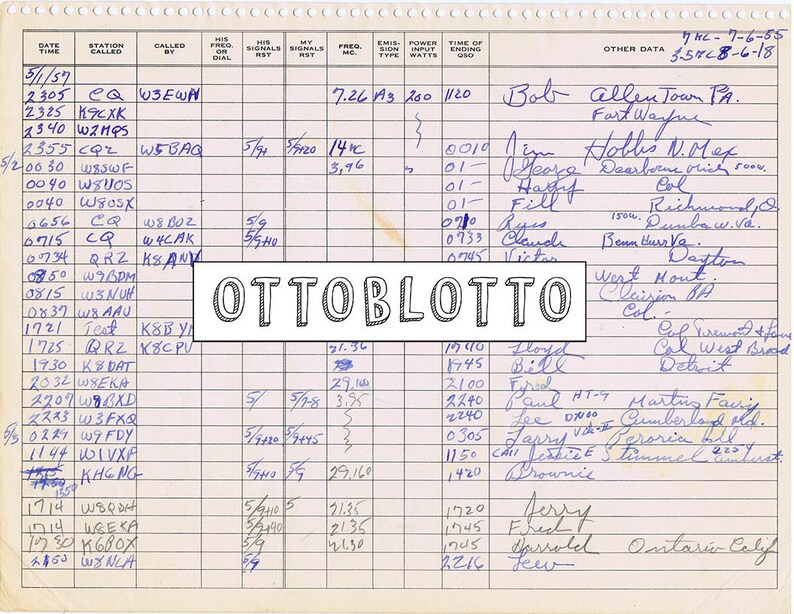 7 MC - 7-6-55
3.5 MC 8-6-18
DATE TIME STATION CALLED CALLED BY HIS FREQ. OR DIAL HIS SIGNALS RST MY SIGNALS RST FREQ. MC. EMIS-SION TYPE POWER INPUT WATTS TIME OF ENDING QSO OTHER DATA
5/1/57
2305 CQ W3EWN 7.26 A3 200 1120 Bob Allentown PA.
2325 K9CXK Fort Wayne
2340 W2MQS
2355 CQ2 W5BAQ 5/9+ 5/9+20 14 MC 0010 Jim Hobbs N. Mex
5/2 0030 W8SWF 3,96 " 01- George Dearborne Mich 500w.
0040 W8UOS 01- Harry Col
0040 W8OSX 01- Fill Richmond, O.
0656 CQ W8BOZ 5/9 0710 Russ 150w. Dunba W. Va.
0715 CQ W4CAK 5/9+10 0733 Claude Benn Hurr Va.
0734 QRZ 0745 Victor Dayton
0850 W9BDM West Mont.
0815 W3NUH Clairion PA
0837 W8AAU Col.
OTTOBLOTTO
1721 Test K8BYN Col Tremont &
1725 QRZ K8CPV 21.36 1740 Lloyd Col West Broad
1930 K8DAT 1945 Bill Detroit
2032 W8EKA 29.160 2100 Fred
2207 W8BXD 5/ 5/7-8 3,95 2240 Paul HT-9 Martins Fairy
2223 W3FXQ 2240 Lee DX100 Cumberland Md.
5/3 0229 W9FDY 5/9+20 5/9+45 0305 Larry Peroria Ill
1144 W1VXF 1150 Call Jessie E Stimmel Amherst.
1350 KH6NG 5/9+10 5/9 29.160 1420 Brownie
1714 W8QDH 5/9+10 5 21.35 1720 Jerry
1714 W8EKA 5/9+40 21.35 1745 Fred
1730 K6BOX 5/9 21.30 1745 Harrold Ontario Calif
2150 W8NLA 5/9 2216 Lew